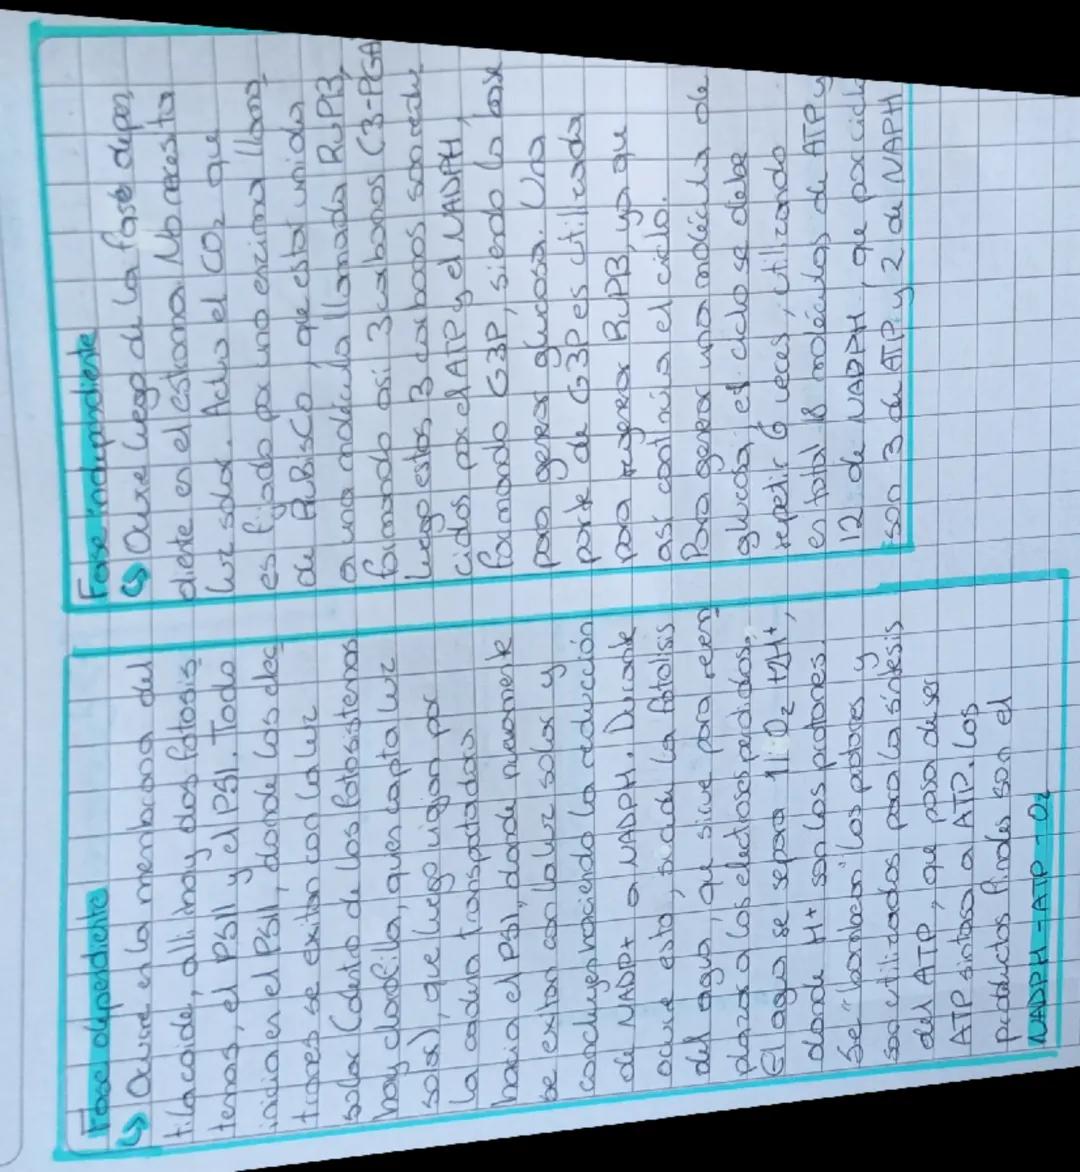 Fase dependiente
↳ Ocurre en la membrana del
tilacoide, alli hay dos fotosis-
temas, el PSII y el PSI. Todo
inicia en el PSII, donde los elec
trones se exitan con la luz
solar (dentro de los fotosistemas
hay clorofilla, quien capta luz
solar), que luego viajan por
la cadena transportadora
hacia el PSI, donde nuevamente
se exitan con la luz solar y
concluyen haciendo la reducción
de NADP+ a NADPH. Durante
ocurre esto, sucede la fotolisis
del agua, que sirve para reem
plazar a los electrones perdidos,
El agua se separa 1/2 O2 +2H+,
donde H+ son los protones.
Se "bombean" los protones y
son utilizados para la síntesis
del ATP, que pasa de ser
ATP sintasa a ATP. Los
productos finales son el
NADPH - ATP - O2
Fase independiente
↳ Ocurre luego de la fase depen
diente en el estroma. No necesita
luz solar. Actua el CO2 que
es fijado por una enzima llama-
da RUBISCO, que esta unida
a una molécula llamada RuPB,
formando asi 3 carbonos (3-PGA)
Luego estos 3 carbonos son redu
cidos por el ATP y el NADPH,
formando G3P, siendo la base
para generar glucosa. Una
parte de G3P es utilizada
para regenerar RuPB, ya que
así continúa el ciclo.
Para generar una molécula de
glucosa, el ciclo se debe
repetir 6 veces, utilizando
en total 18 moléculas de ATP y
12 de NADPH, que por ciclo
son 3 de ATP y 2 de NAPH